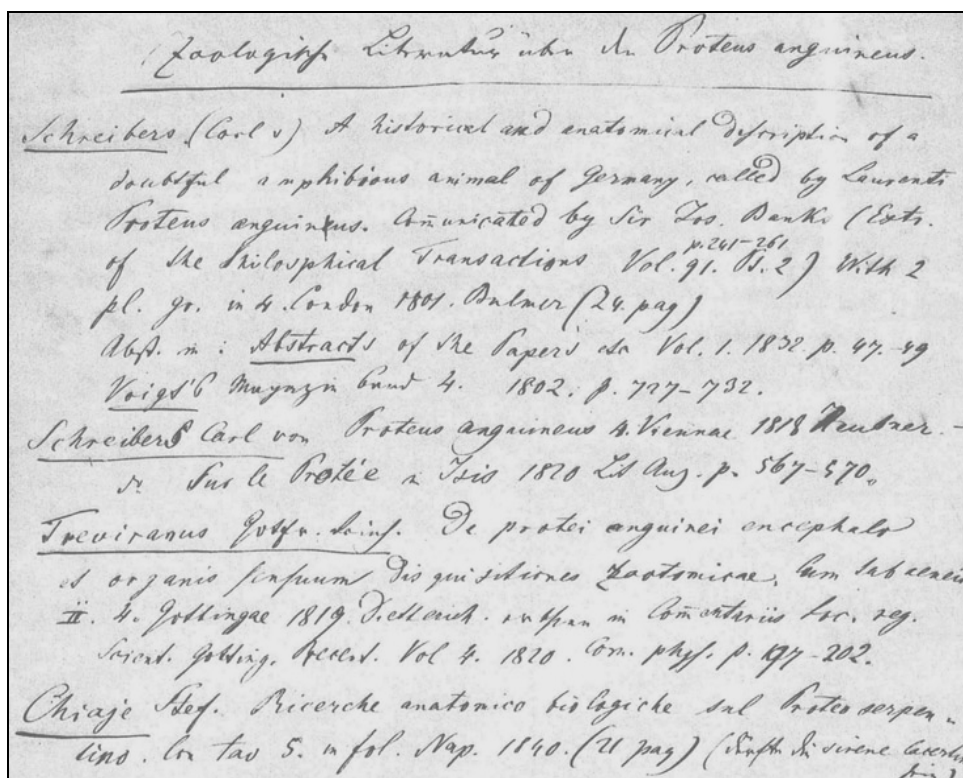 Zoologische Literatur über den Proteus anguineus.
Schreibers (Carl v) A historical and anatomical description of a
doubtful amphibious animal of Germany, called by Laurenti
Proteus anguineus. Com̄unicated by Sir Jos. Banks (Extr.
of the Philosphical Transactions Vol. 91. Pt. 2) p. 241-261 With 2
pl. gr. in 4. London 1801. Bulmer (24. pag)
Abst. in: Abstracts of the Papers etc Vol. 1. 1832. p. 47.-49
Voigt's Magazin Band 4. 1802. p. 727-732.
Schreibers Carl von Proteus anguineus 4. Viennae 1818
Sur le Protée Isis 1820 Lit Anz. p. 567-570.
Treviranus Gottfr. Reinh. De protei anguinei encephalo
et organis sensuum Disquisitiones zootomicae. Cum tab aeneis
II. 4. Gottingae 1819. Dieterich. in Com̄entariis Soc. reg.
Scient. Gotting. Recent. Vol 4. 1820. Com. phys. p. 197-202.
Chiaje Stef. Ricerche anatomico biologiche sul Proteo serpen-
tino. Con tav 5. in fol. Nap. 1840. (21 pag) sirene